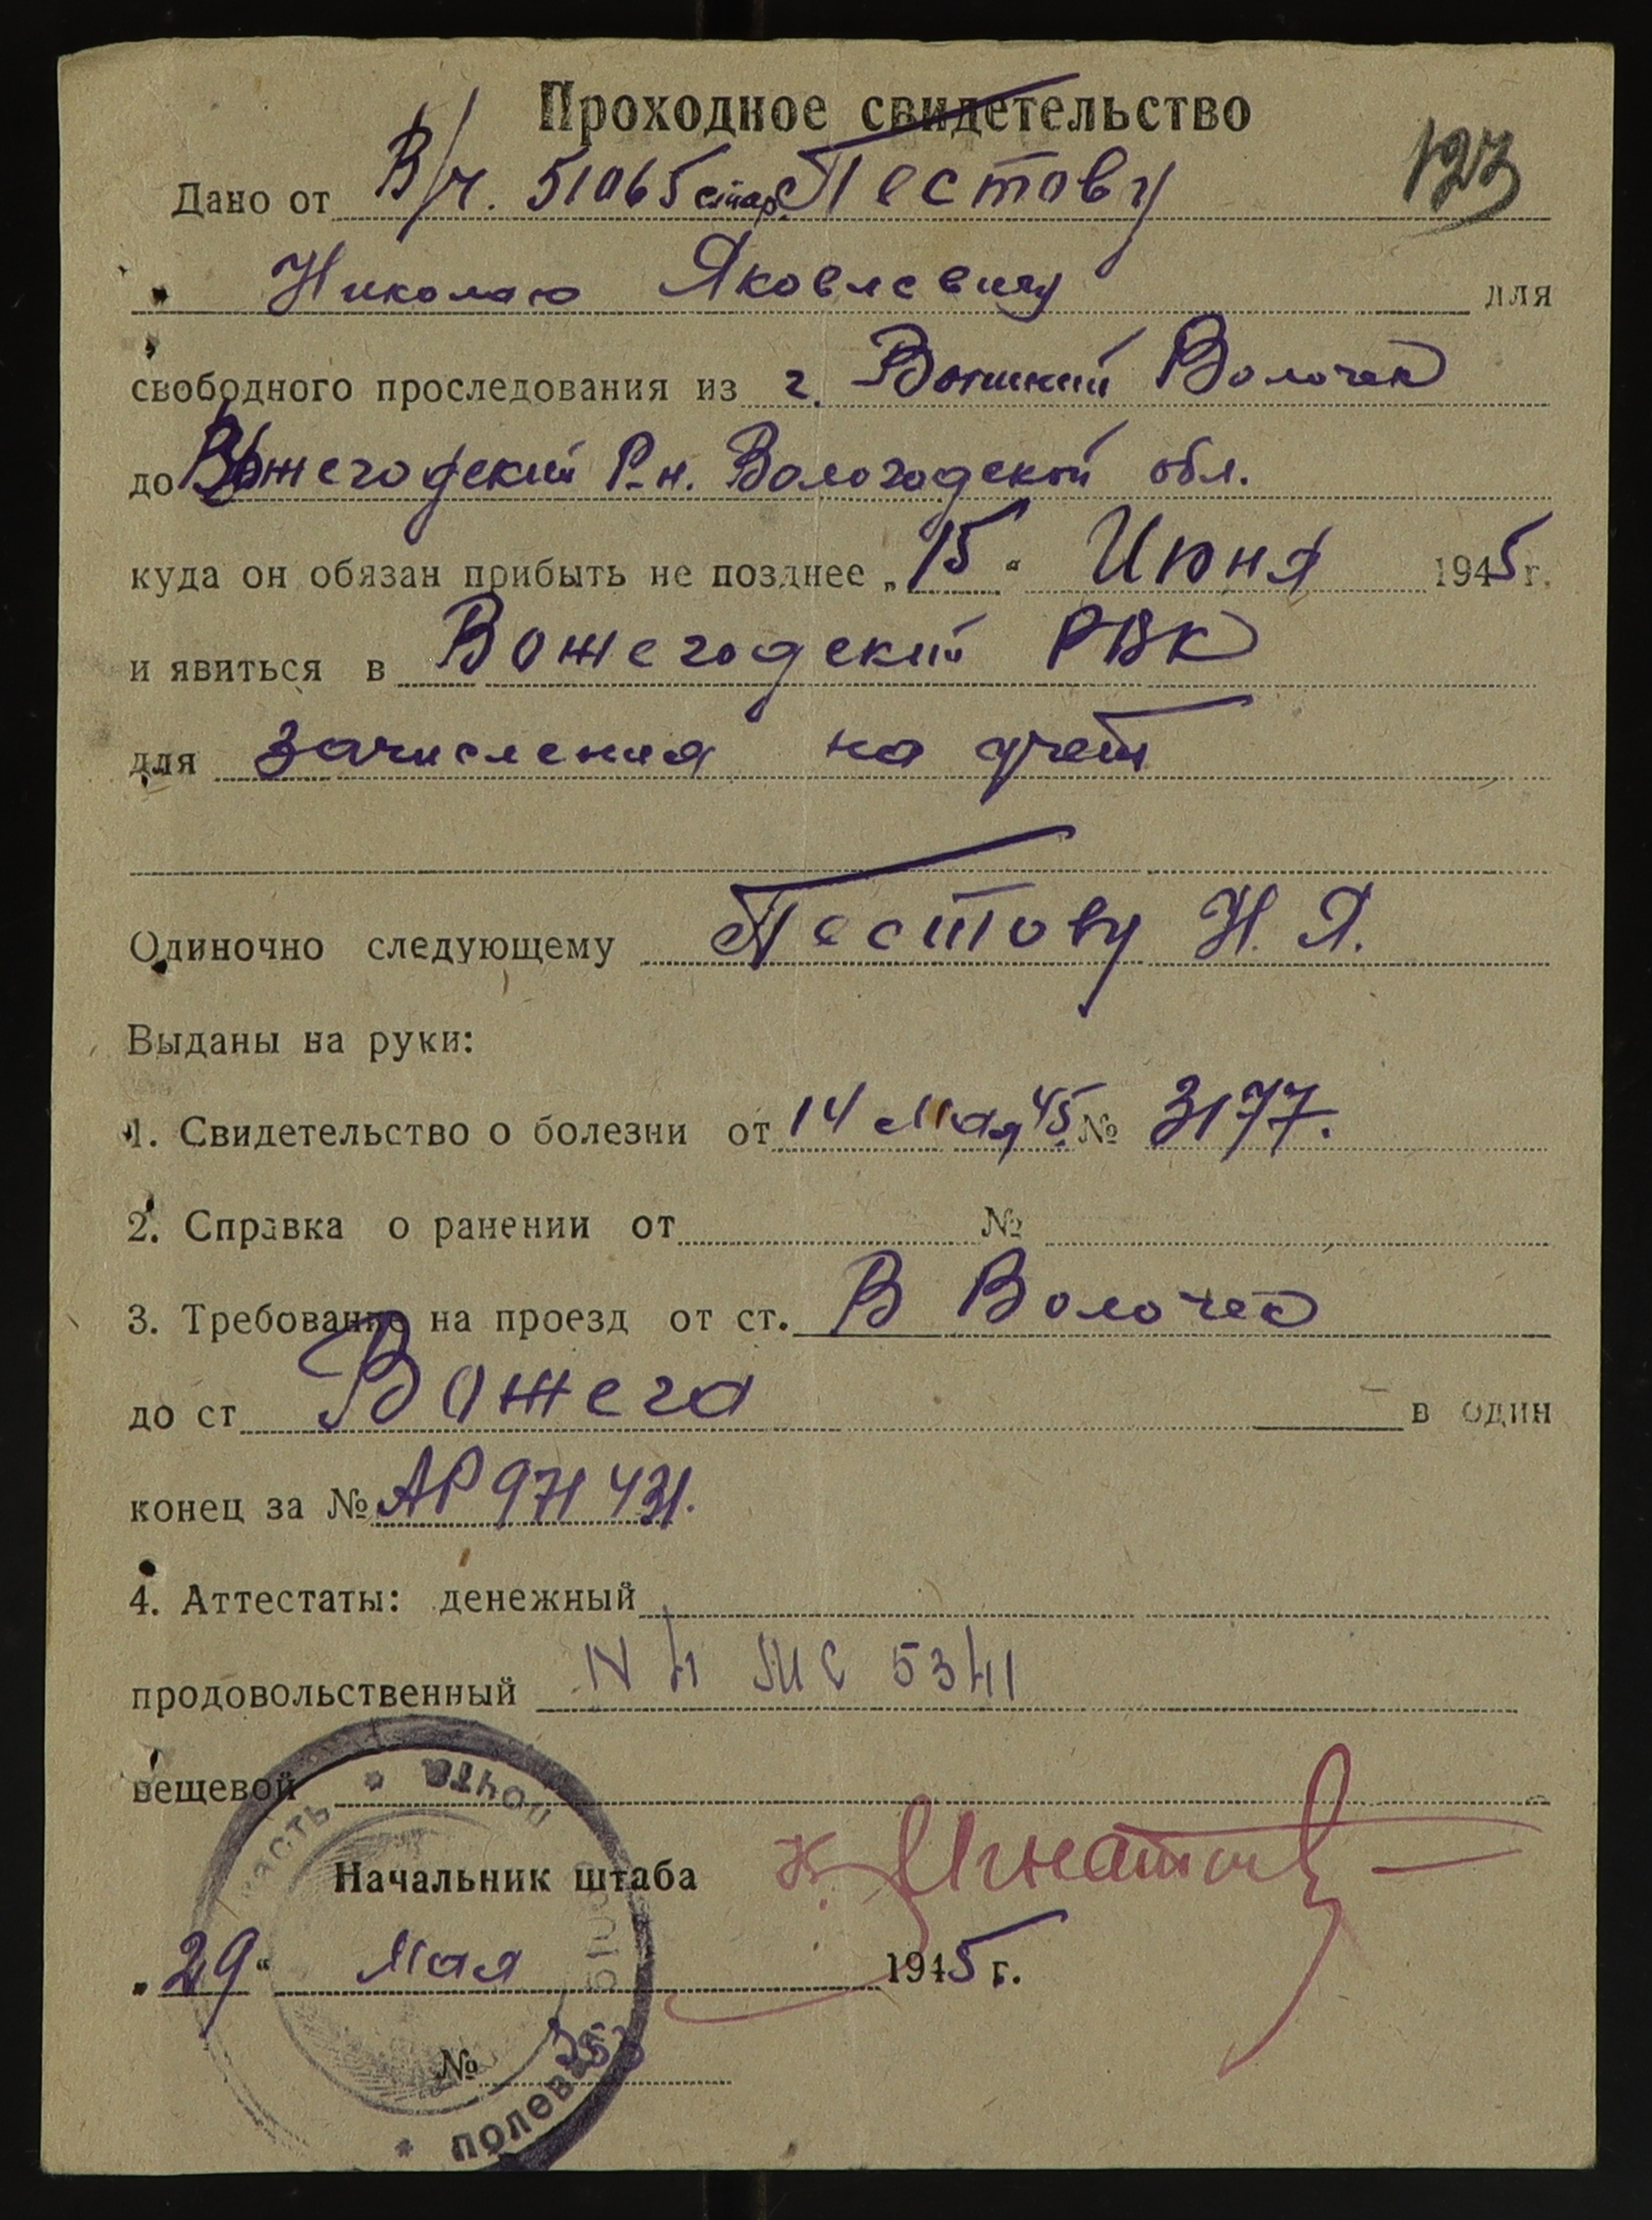 Проходное свидетельство
123
Дано от В/ч. 51065 стар. Пестову
Николаю Яковлевичу для
свободного проследования из г. Вышний Волочек
до Вожегодский Р-н. Вологодской обл.
куда он обязан прибыть не позднее „15“ Июня 1945 г.
и явиться в Вожегодский РВК
для зачисления на учет
Одиночно следующему Пестову Н. Я.
Выданы на руки:
1. Свидетельство о болезни от 14 Мая 45. № 3177.
2. Справка о ранении от № 
3. Требование на проезд от ст. В Волочек
до ст Вожега в один
конец за № АР 971431.
4. Аттестаты: денежный
продовольственный
вещевой
Начальник штаба К. Игнатов
„29“ Мая 1945 г.
№
полевая почта часть